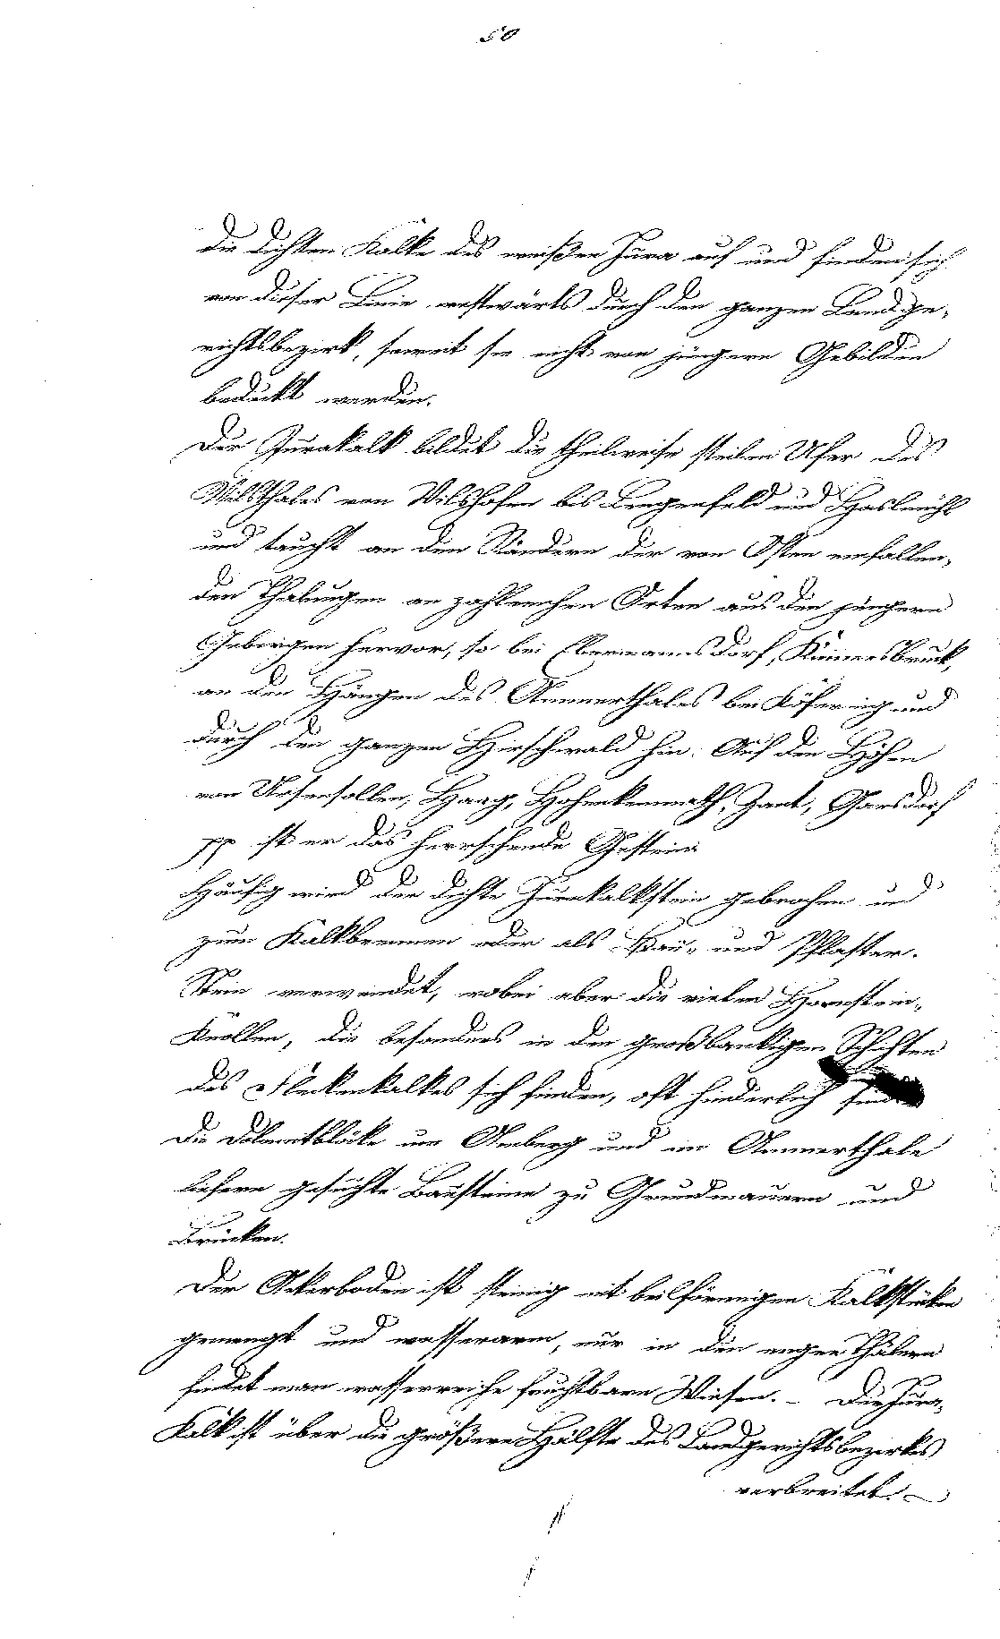 50
die dichten Kalke des weißen Jura auf und finden sich
von dieser Linie westwärts durch den ganzen Landge-
richtsbezirk, soweit sie nicht von jüngern Gebilden
bedeckt werden.
Der Jurakalk bildet die theilweise steilen Ufer des
Vilsthales von Vilshofen bis Lengenfeld und Haslmühl
und taucht an den Rändern der von Osten einfallen-
den Thalungen an zahlreichen Orten aus den jüngern
Gebirgen hervor, so bei Ebermannsdorf, Kümersbruck,
an den Hängen des Ammerthales bei Köfering und
durch den ganzen Hirschwald hin. Auf den Höhen
von Ursensollen, Haag, Hohenkemnath, Zant, Garsdorf
pp ist er das herrschende Gestein.
Häufig wird der dichte Jurakalkstein gebrochen und
zum Kalkbrennen oder als Bau- und Pflaster-
Stein verwendet, wobei aber die vielen Hornstein-
Knollen, die besonders in den großbankigen Schichten
des Fleckenkalkes sich finden, oft hinderlich sind.
Die Dolomitblöcke um Amberg und im Ammerthale
liefern gesuchte Bausteine zu Grundmauern und
Brücken.
Der Ackerboden ist steinig mit beilförmigen Kalkstücken
gemengt und wasserarm, nur in den engen Thälern
findet man wasserreiche fruchtbare Wiesen. – Der Jura-
Kalk ist über die größere Hälfte des Landgerichtsbezirkes
verbreitet. –